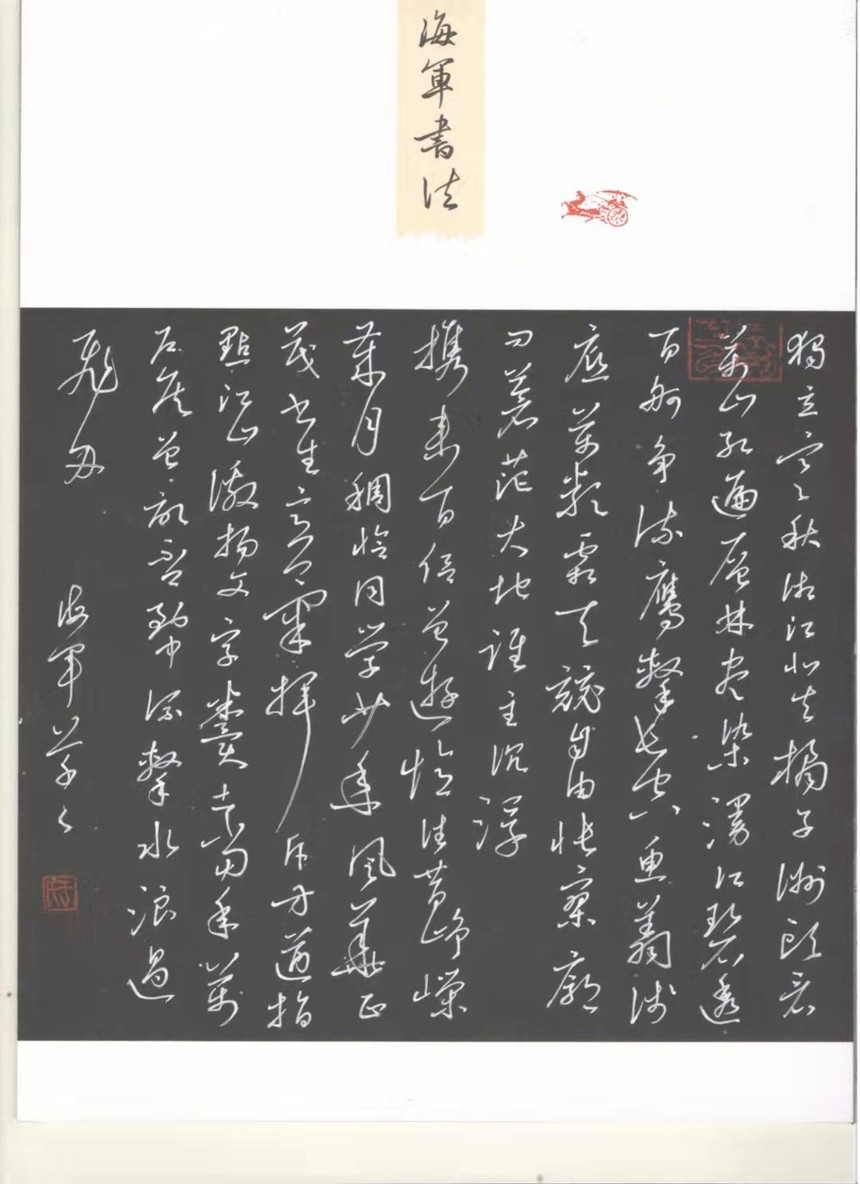 海軍書法
獨立寒秋湘江北去橘子洲頭看
萬山紅遍層林尽染漫江碧透
百舸争流鷹擊長空魚翔淺
底萬類霜天競自由悵寥廓
问蒼茫大地誰主沉浮
携來百侣曾遊憶往昔崢嶸
歲月稠恰同學少年風華正
茂书生意氣揮斥方遒指
點江山激扬文字糞土當年萬
户侯曾記否到中流擊水浪遏
飛舟
海軍草